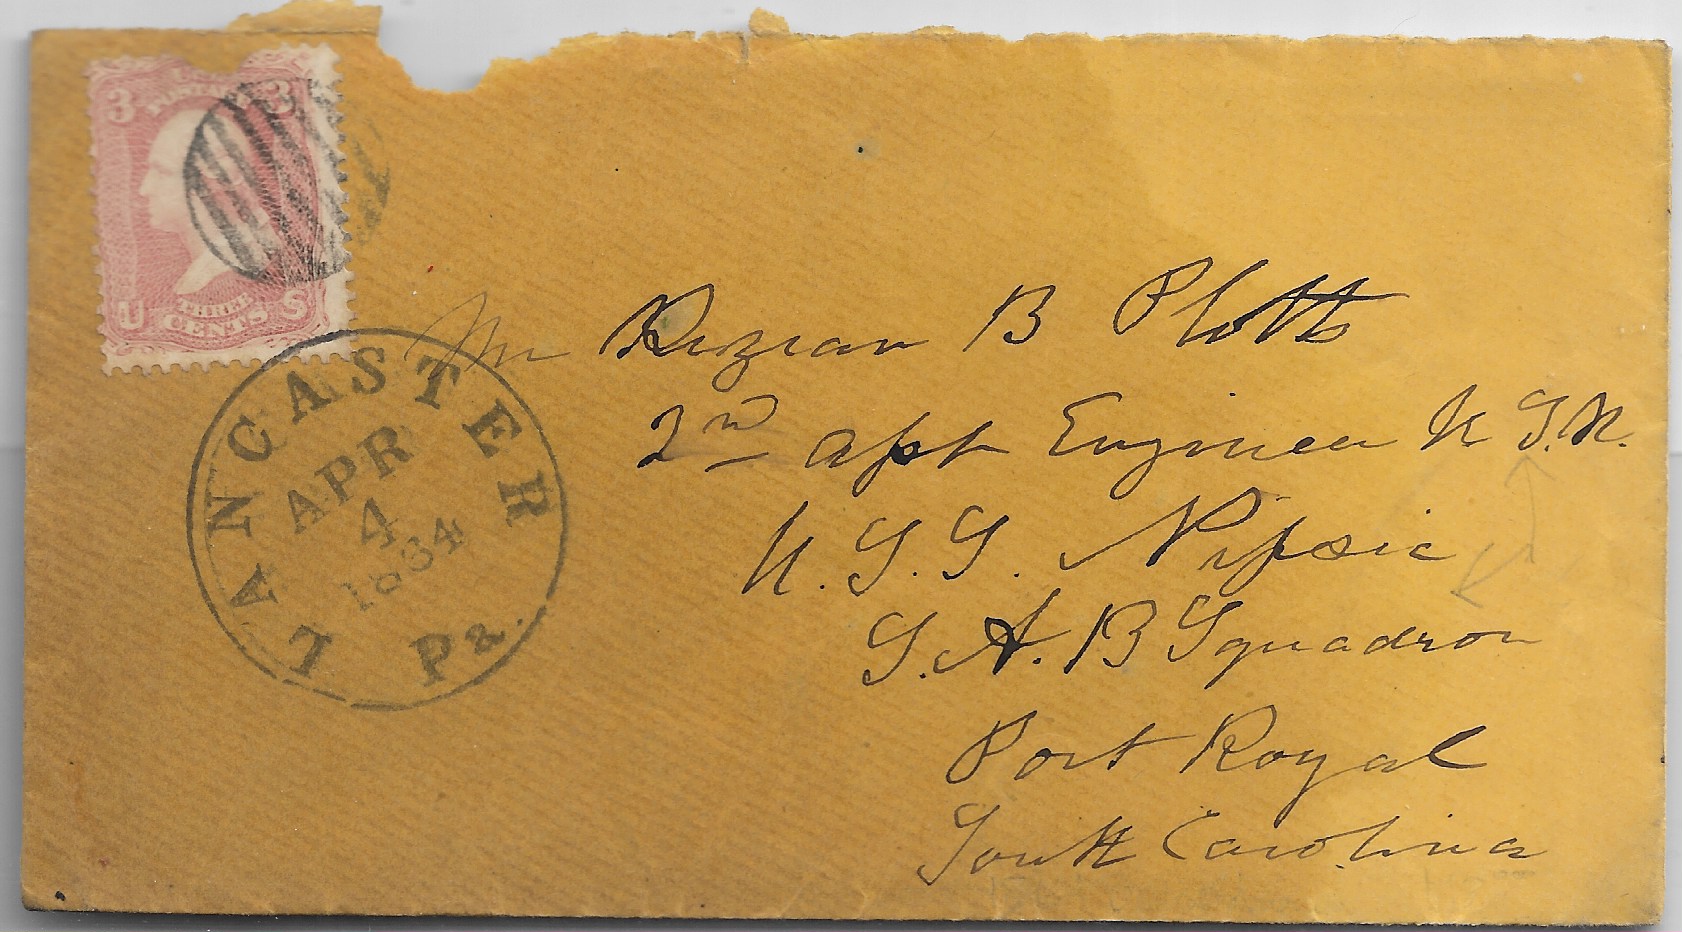 3 3
U. S. POSTAGE
U THREE S
CENTS
LANCASTER Pa.
APR
4
1864
Mr Rezeau B Plotts
2nd asst Engineer U S.N.
U.S.S. Nipsic
S.A.B Squadron
Port Royal
South Carolina